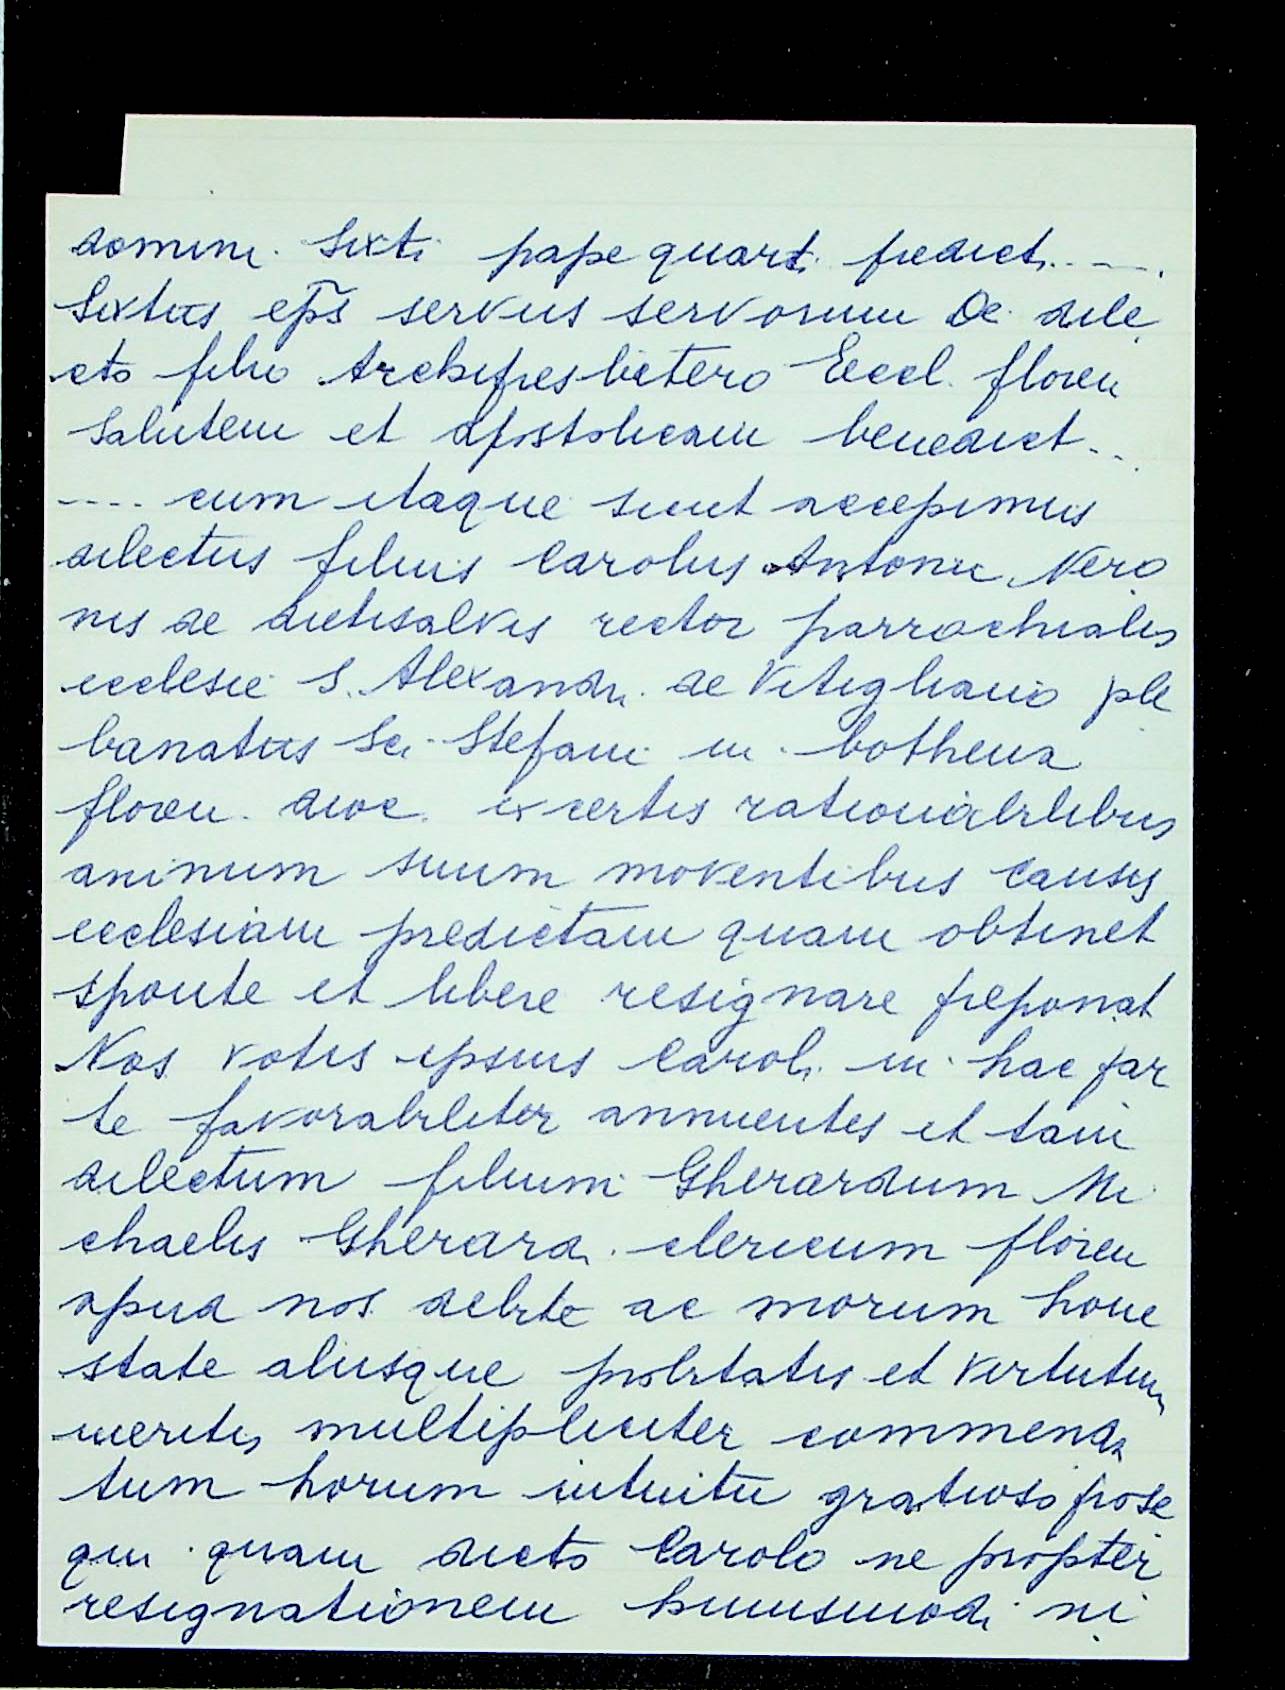 domini Sixti pape quarti predict. ----.
Sixtus ep̄s servus servorum Dei dile
cto filio Archipresbitero Eccl. floren
salutem et apostolicam benedict...
---- cum itaque sicut accepimus
dilectus filius Carolus Antonii Nero
nis de dietisalvis rector parrochialis
ecclesie S. Alexandri de Vitigliano ple
banatus Sci Stefani in bothena
floren. dioc. ex certis rationabilibus
animum suum moventibus causis
ecclesiam predictam quam obtinet
sponte et libere resignare preponat
Nos votis ipsius Caroli in hac par
te favorabiliter annuentes et tam
dilectum filium Gherardum Mi
chaelis Gherardi clericum floren
apud nos de vite ac morum hone
state aliisque probitatis et virtutum
meritis multipliciter commenda
tum horum intuitu gratioso prose
qui quam dicto Carolo ne propter
resignationem huiusmodi ni